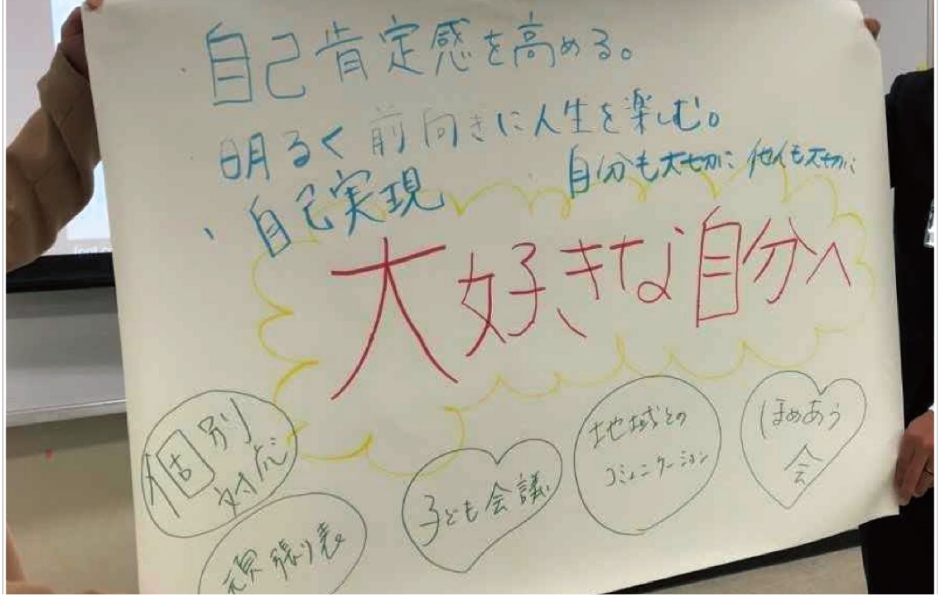 ・自己肯定感を高める。
・明るく前向きに人生を楽しむ。
自分も大切に 他人も大切に
・自己実現
大好きな自分へ
個別
対応
頑張り表
子ども会議
地域との
コミュニケーション
ほめあう
会